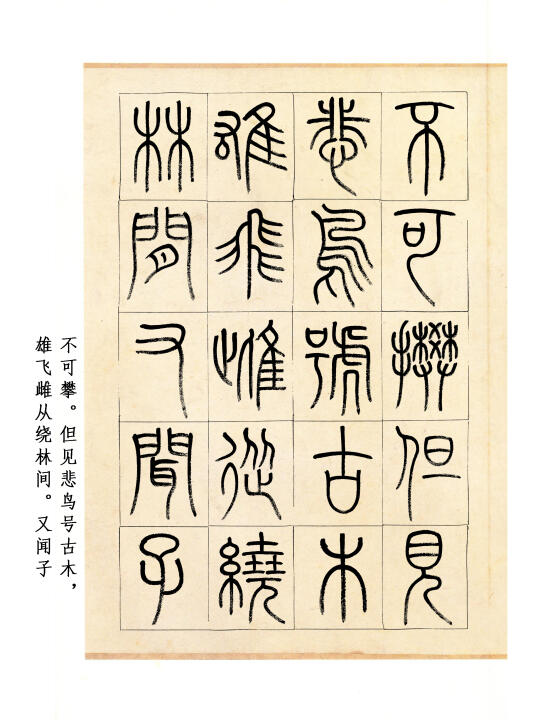 不可攀但見
悲鳥號古木
雄飛雌從繞
林間又聞子
不可攀。但见悲鸟号古木，
雄飞雌从绕林间。又闻子